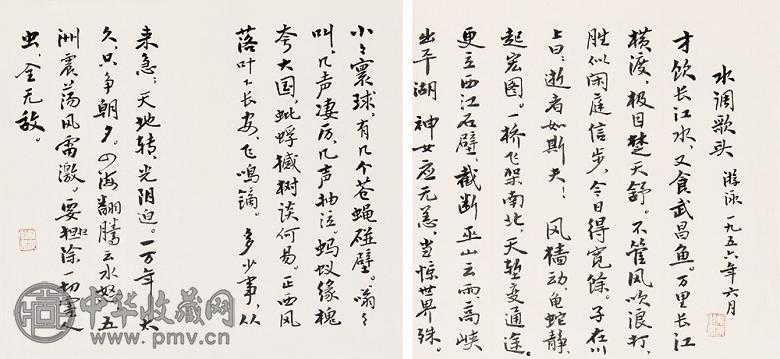 水调歌头 游泳 一九五六年六月
才饮长江水,又食武昌鱼。万里长江
横渡,极目楚天舒。不管风吹浪打,
胜似闲庭信步,今日得宽馀。子在川
上曰:逝者如斯夫! 风樯动,龟蛇静,
起宏图。一桥飞架南北,天堑变通途。
更立西江石壁,截断巫山云雨,高峡
出平湖。神女应无恙,当惊世界殊。
小々寰球,有几个苍蝇碰壁。嗡々
叫,几声凄厉,几声抽泣。蚂蚁缘槐
夸大国,蚍蜉撼树谈何易。正西风
落叶下长安,飞鸣镝。 多少事,从
来急,天地转,光阴迫。一万年太
久,只争朝夕。四海翻腾云水怒,五
洲震荡风雷激。要除一切害人
虫,全无敌。
中华收藏网